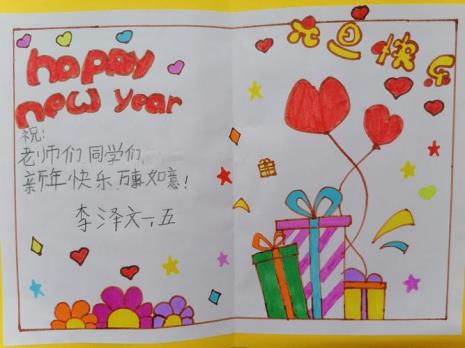 happy
new year
祝:
老师们同学们,
新年快乐万事如意!
李泽文一,五
元旦快乐